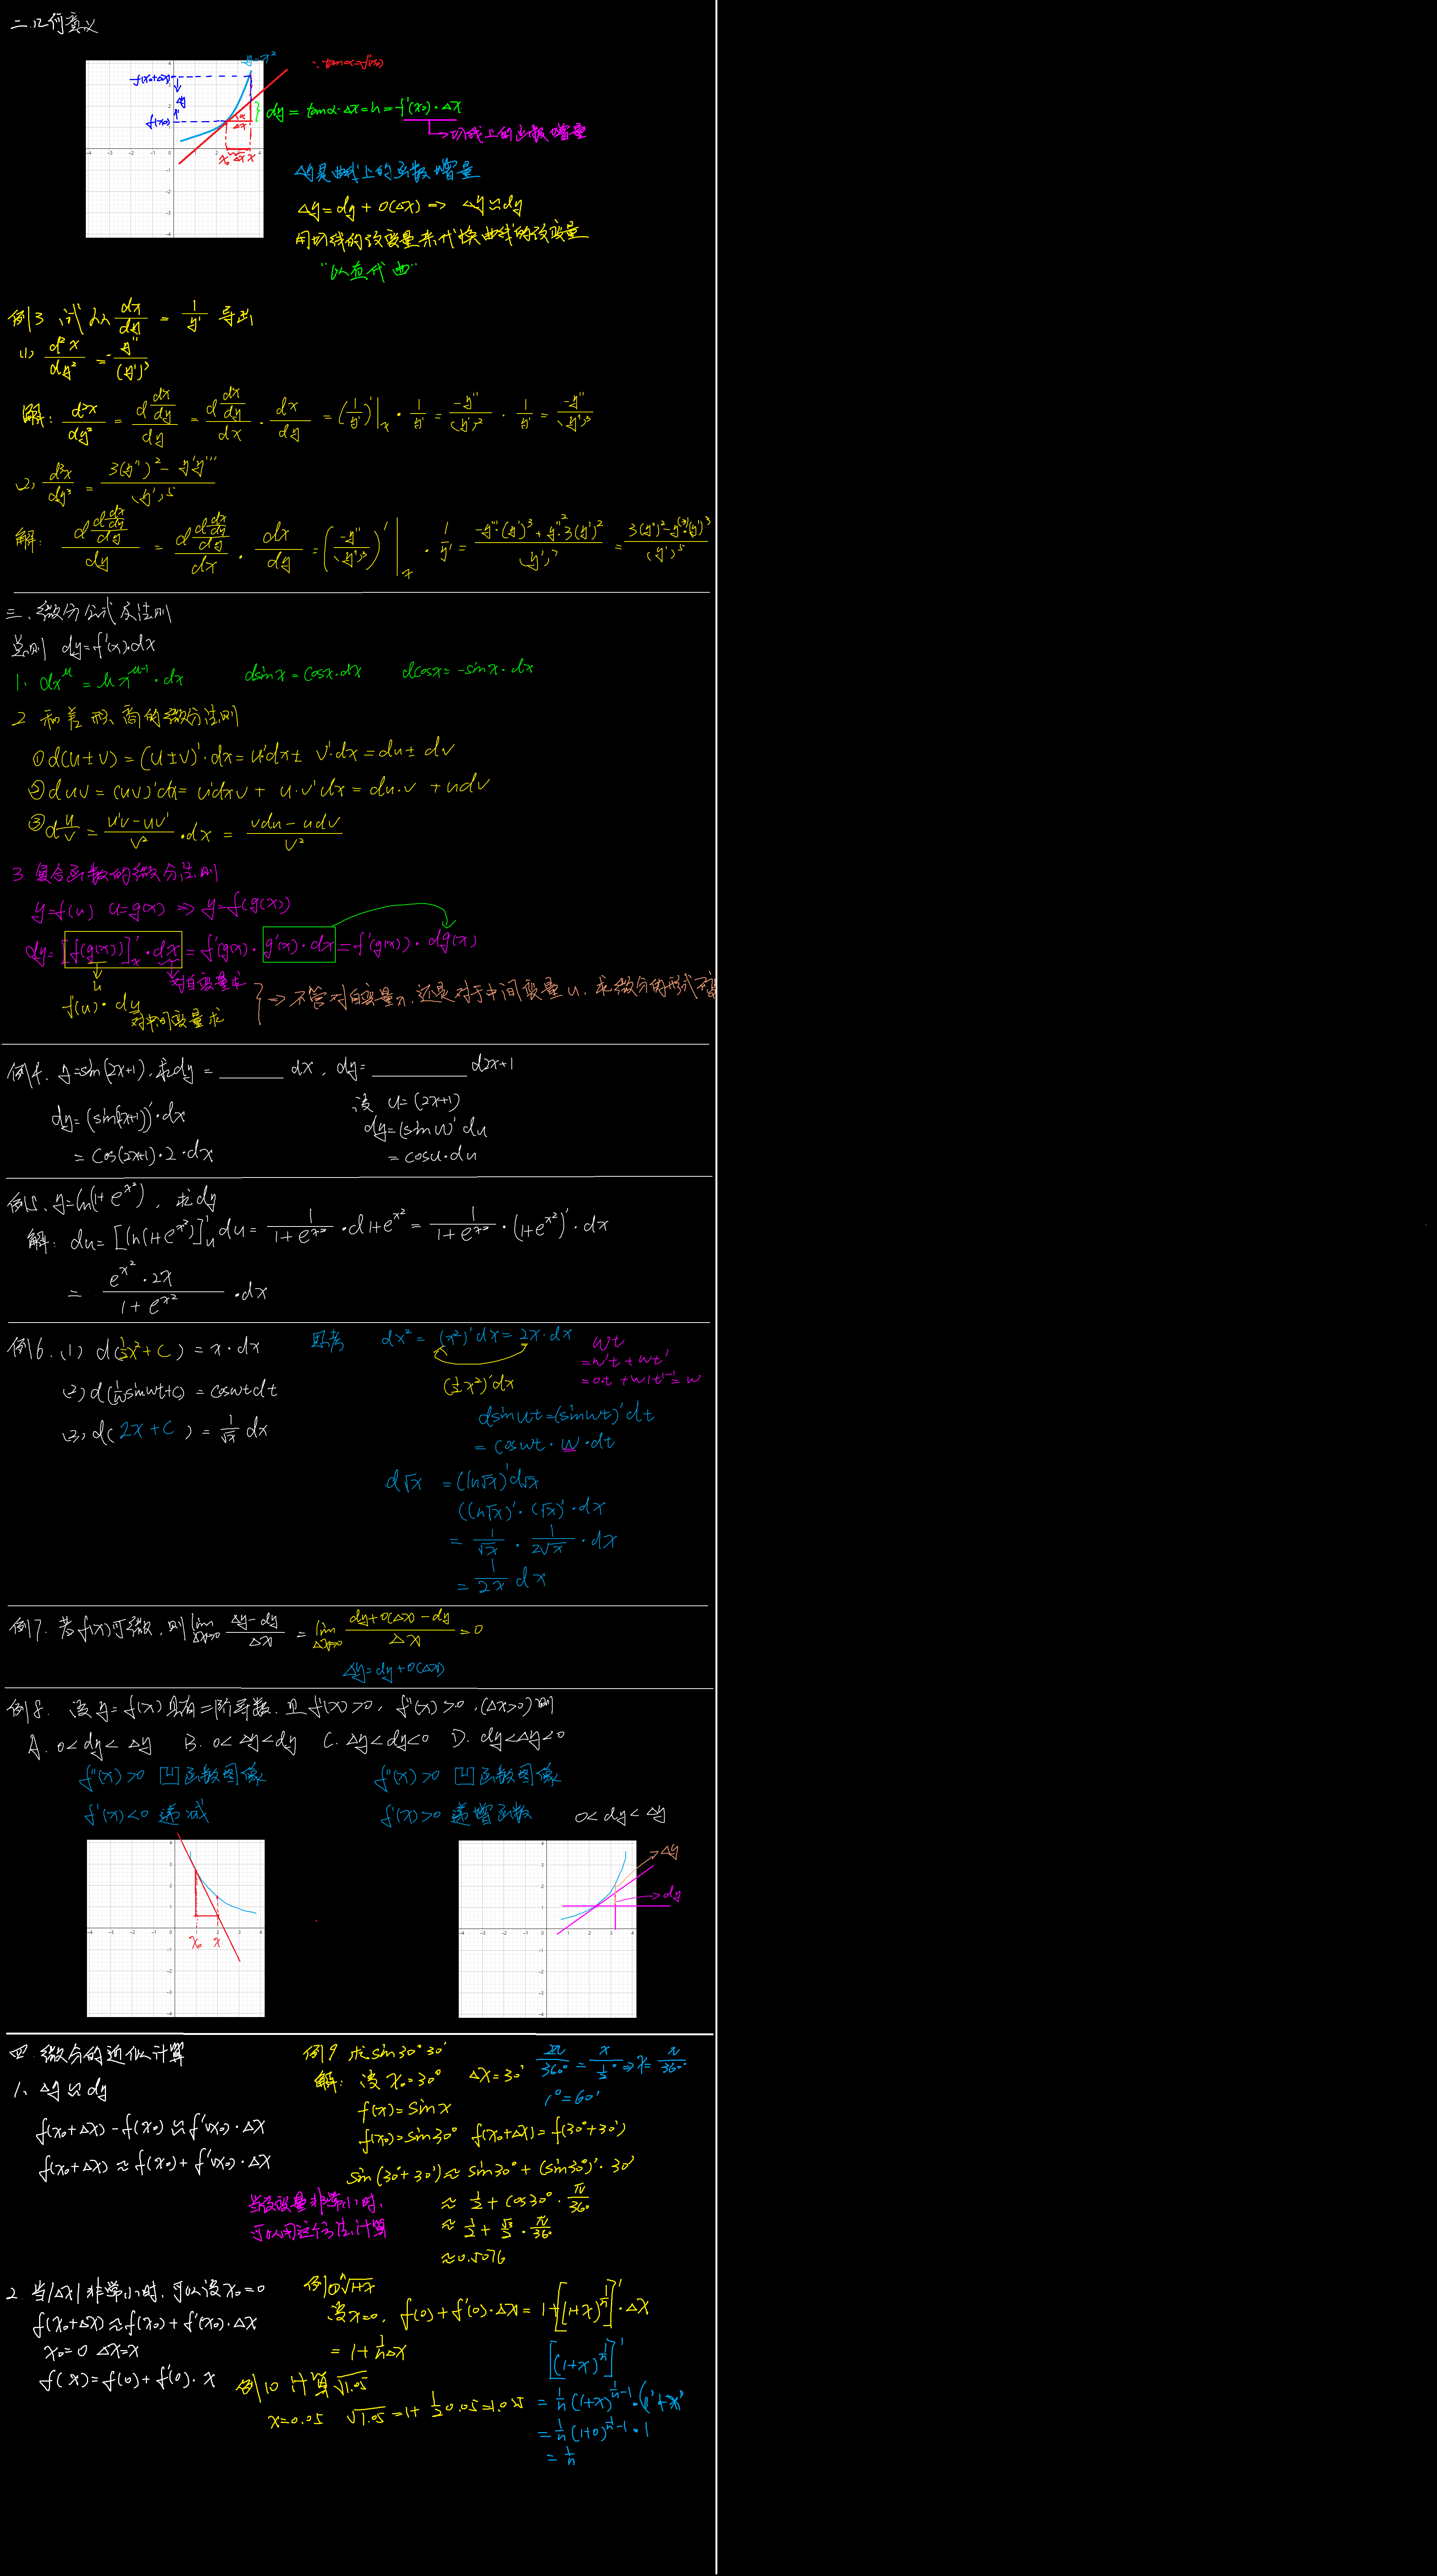 二.几何意义
y=x²
∵tanα=f'(x₀)
f(x₀+Δx)
Δy
f(x₀)
α
Δx
x₀ Δx x
dy = tanα·Δx = h = f'(x₀)·Δx
→切线上的函数增量
Δy是曲线上的函数增量
Δy = dy + o(Δx) => Δy≈dy
用切线的改变量来代换曲线的改变量
"以直代曲"
例3 试从 dx/dy = 1/y' 导出
(1) d²x/dy² = -y''/(y')³
解: d²x/dy² = d(dx/dy)/dy = d(dx/dy)/dx · dx/dy = (1/y')'|ₓ · 1/y' = -y''/(y')² · 1/y' = -y''/(y')³
(2) d³x/dy³ = (3(y'')² - y'y''')/(y')⁵
解: d(d(dx/dy)/dy)/dy = d(d(dx/dy)/dy)/dx · dx/dy = (-y''/(y')³)'|ₓ · 1/y' = (-y'''·(y')³ + y''²·3(y')²)/(y')⁷ = (3(y'')² - y⁽³⁾·(y')³)/(y')⁵
三、微分公式及法则
总则 dy=f'(x)·dx
1. dx^μ = μx^(μ-1)·dx dsinx = cosx·dx dcosx = -sinx·dx
2 和差积、商的微分法则
① d(u±v) = (u±v)'·dx = u'·dx ± v'·dx = du ± dv
② duv = (uv)'dx = u'dxv + u·v'dx = du·v + udv
③ d u/v = (u'v - uv')/v² ·dx = (vdu - udv)/v²
3 复合函数的微分法则
y=f(u) u=g(x) => y=f(g(x))
dy = [f(g(x))]'ₓ·dx = f'(g(x)·g'(x)·dx = f'(g(x))·dg(x)
u
对自变量求
f'(u)·du
对中间变量求
=> 不管对自变量x,还是对于中间变量u,求微分的形式不变
例4. y=sin(2x+1),求dy = ______ dx, dy= ______ d2x+1
dy = (sin(2x+1))'·dx
= cos(2x+1)·2·dx
设 u=(2x+1)
dy=(sinu)'du
= cosu·du
例5、y=ln(1+e^(x²)), 求dy
解: du = [ln(1+e^(x²)]'ᵤ du = 1/(1+e^(x²)) ·d1+e^(x²) = 1/(1+e^(x²)) ·(1+e^(x²))'·dx
= (e^(x²)·2x)/(1+e^(x²)) ·dx
例6.(1) d(½x²+C) = x·dx
(2) d(1/w sinwt+C) = coswtdt
(3) d(2x+C) = 1/√x dx
思考 dx² = (x²)'dx = 2x·dx
(½x²)'dx
wt
=w't + wt'
=0·t + w1t¹⁻¹ = w
dsinwt = (sinwt)'dt
= coswt·w·dt
d√x = (ln√x)'d√x
(ln√x)'·(√x)'·dx
= 1/√x · 1/2√x ·dx
= 1/2x dx
例7. 若f(x)可微,则 lim Δx→0 (Δy-dy)/Δx = lim Δx→0 (dy+o(Δx)-dy)/Δx = 0
Δy=dy+o(Δx)
例8. 设y=f(x)具有二阶导数,且f'(x)>0, f''(x)>0,(Δx>0)则
A. 0<dy<Δy B. 0<Δy<dy C. Δy<dy<0 D. dy<Δy<0
f''(x)>0 凹函数图像
f'(x)<0 递减
f''(x)>0 凹函数图像
f'(x)>0 递增函数 0<dy<Δy
x₀ x
→Δy
→dy
四.微分的近似计算
1、Δy≈dy
f(x₀+Δx)-f(x₀)≈f'(x₀)·Δx
f(x₀+Δx)≈f(x₀)+f'(x₀)·Δx
例9 求sin30°30'
解: 设x₀=30° Δx=30'
f(x)=sinx
f(x₀)=sin30° f(x₀+Δx)=f(30°+30')
sin(30°+30')≈sin30°+(sin30°)'·30'
≈ ½+cos30°·π/360
≈ ½+√3/2·π/360
≈0.5076
2π/360° = x/½° => x=π/360
1°=60'
当改变量非常小时,
可以用这个方法计算
2. 当|Δx|非常小时,可以设x₀=0
f(x₀+Δx)≈f(x₀)+f'(x₀)·Δx
x₀=0 Δx=x
f(x)=f(0)+f'(0)·x
例⑩ ⁿ√1+x
设x=0, f(0)+f'(0)·Δx = 1+[(1+x)^(1/n)]'·Δx
= 1+1/nΔx
[(1+x)^(1/n)]'
= 1/n(1+x)^(1/n-1)·(1'+x)'
= 1/n(1+0)^(1/n-1)·1
= 1/n
例10 计算√1.05
x=0.05 √1.05=1+½0.05=1.025